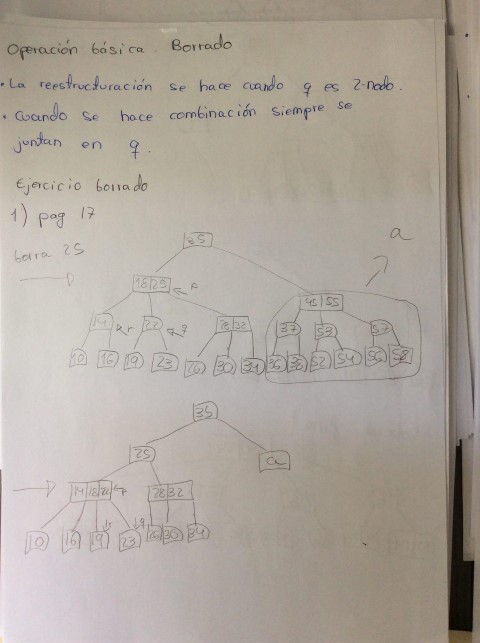 Operación básica Borrado
• La reestructuración se hace cuando q es 2-nodo.
• Cuando se hace combinación siempre se
juntan en q.
Ejercicio borrado
1) pag 17
borra 25
35
a
18|25
p
48 55
14 r 22 q 28|32 37 53 57
10 16 19 23 26 30 34 36 38 52 54 56 58
35
25
a
14|18|22 28|32
q
10 16 19 23 26 30 34